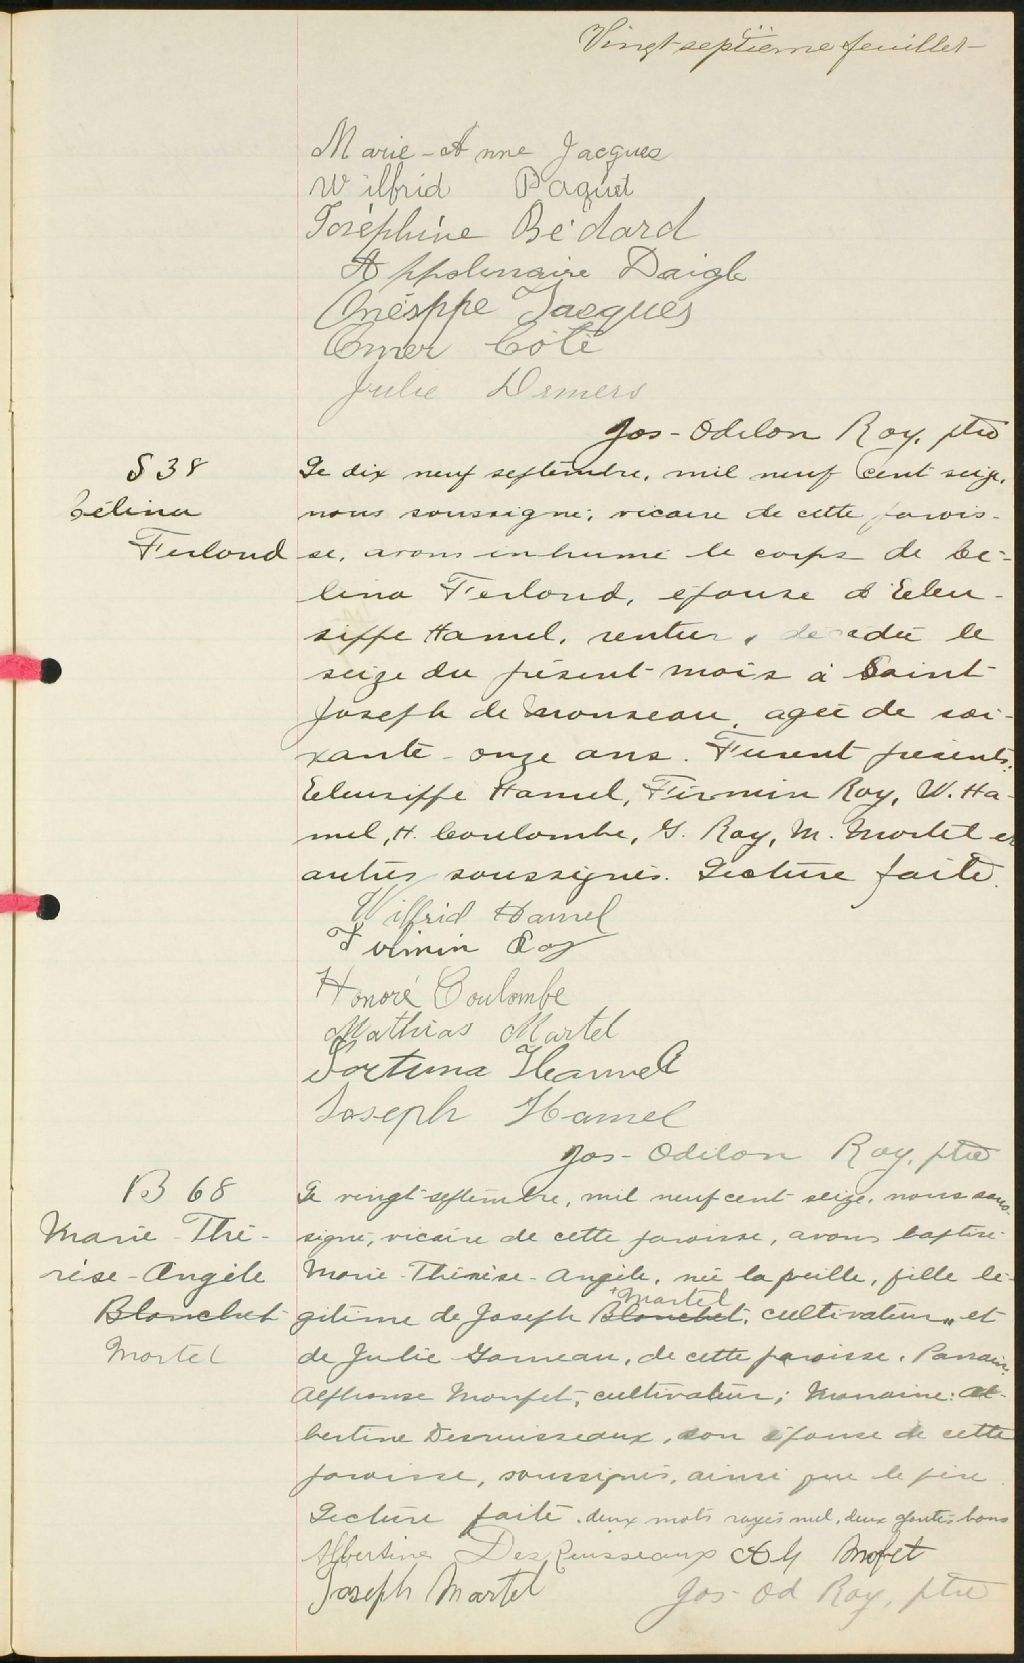 Vingt-septième feuillet
Marie-Anne Jacques
Wilfrid Paquet
Joséphine Bédard
Appolinaire Daigle
Onésppe Jacques
Omer Côté
Julie Demers
Jos-Odilon Roy, ptre
S 38
Célina
Ferland
Le dix neuf septembre, mil neuf cent seize,
nous soussigné, vicaire de cette parois-
se, avons inhumé le corps de Cé-
lina Ferland, épouse d'Eleu-
sippe Hamel, rentier, décédée le
seize du présent mois à Saint
Joseph de , agée de soi-
xante-onze ans. Furent présents:
Eleusippe Hamel, Firmin Roy, W. Ha-
mel, H. Coulombe, G. Roy, M. Martel et
autres soussignés. Lecture faite.
Wilfrid Hamel
Firmin Roy
Honoré Coulombe
Mathias Martel
Fortuna Hamel
Joseph Hamel
Jos-Odilon Roy, ptre
B 68
Marie-Thé-
rèse-Angèle
Blanchet
Martel
Le vingt-septembre, mil neuf cent seize, nous sous-
signé, vicaire de cette paroisse, avons baptisé
Marie-Thérèse-Angèle, née la veille, fille lé-
Martel
gitime de Joseph Blanchet, cultivateur, et
de Julie Garneau, de cette paroisse. Parrain:
Alphonse Monfet, cultivateur; Marraine: Al-
bertine Desruisseaux, son épouse de cette
paroisse, soussignés, ainsi que le père
Lecture faite. deux mots rayés nul, deux ajoutés bons
Albertine DesRuisseaux Alp Mofet
Joseph Martel Jos-Od Roy, ptre